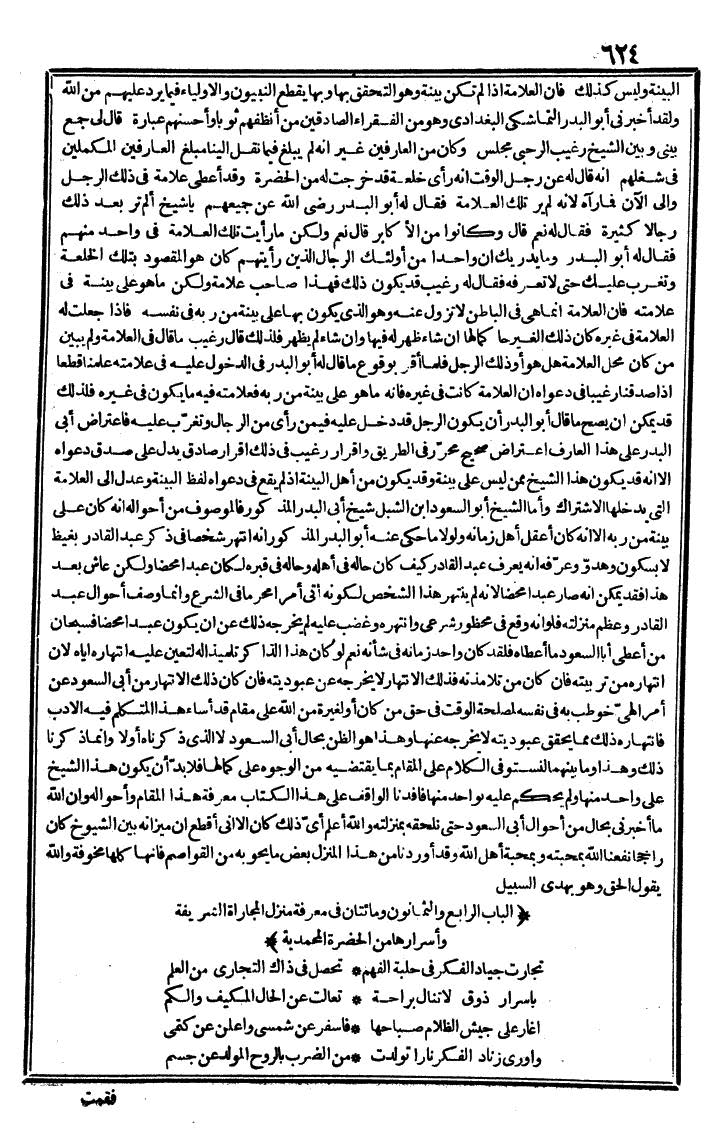 ٦٢٤
البينة وليس كذلك فان العلامة اذا لم تكن بينة وهو التحقق بها وبها يقطع النبيون والاولياء فيما يرد عليهم من الله
ولقد أخبرنى أبو البدر التماشكى البغدادى وهو من الفقراء الصادقين من أنظفهم ثوبا وأحسنهم عبارة قال لى جمع
بينى وبين الشيخ رغيب الرحبى مجلس وكان من العارفين غير انه لم يبلغ فيما نقل الينا مبلغ العارفين المكملين
فى شغلهم انه قال له عن رجل الوقت انه رأى خلعة قد خرجت له من الحضرة وقد أعطى علامة فى ذلك الرجل
والى الآن فما رآه لانه لم ير تلك العلامة فقال له أبو البدر رضى الله عن جميعهم ياشيخ ألم تر بعد ذلك
رجالا كثيرة فقال له نعم قال وكانوا من الأكابر قال نعم ولكن ما رأيت تلك العلامة فى واحد منهم
فقال له أبو البدر وما يدريك ان واحدا من أولئك الرجال الذين رأيتهم كان هو المقصود بتلك الخلعة
وتغرب عليك حتى لا تعرفه فقال له رغيب قد يكون ذلك فهذا صاحب علامة ولكن ما هو على بينة فى
علامته فان العلامة انما هى فى الباطن لا تزول عنه وهو الذى يكون بها على بينة من ربه فى نفسه فاذا جعلت له
العلامة فى غيره كان ذلك الغير حاكما لها ان شاء ظهر له فيها وان شاء لم يظهر فلذلك قال رغيب ما قال فى العلامة ولم يبين
من كان محل العلامة هل هو أو ذلك الرجل فلما أقر بوقوع ما قال له أبو البدر فى الدخول عليه فى علامته علمنا قطعا
اذا صدقنا رغيبا فى دعواه ان العلامة كانت فى غيره فانه ما هو على بينة من ربه فعلامته فيه ما يكون فى غيره فلذلك
قد يمكن ان يصح ما قال أبو البدر أن يكون الرجل قد دخل عليه فيمن رأى من الرجال وتغرّب عليه فاعتراض أبى
البدر على هذا العارف اعتراض صحيح محرّر فى الطريق واقرار رغيب فى ذلك اقرار صادق يدل على صدق دعواه
الا انه قد يكون هذا الشيخ ممن ليس على بينة وقد يكون من أهل البينة اذ لم يقع فى دعواه لفظ البينة وعدل الى العلامة
التى يدخلها الاشتراك وأما الشيخ أبو السعود ابن الشبل شيخ أبى البدر المذكور فالموصوف من أحواله انه كان على
بينة من ربه الا انه كان أعقل أهل زمانه ولولا ما حكى عنه أبو البدر المذكور انه انتهر شخصا فى ذكر عبد القادر بغيظ
لا بسكون وهدوّ وعرّفه انه يعرف عبد القادر كيف كان حاله فى أهله وحاله فى قبره لكان عبدا محضا ولكن عاش بعد
هذا فقد يمكن انه صار عبدا محضا لانه لم ينتهر هذا الشخص لكونه أتى أمرا محرما فى الشرع وانما وصف أحوال عبد
القادر وعظم منزلته فلو انه وقع فى محظور شرعى وانتهره وغضب عليه لم يخرجه ذلك عن ان يكون عبدا محضا فسبحان
من أعطى أبا السعود ما أعطاه فلقد كان واحد زمانه فى شأنه نعم لو كان هذا الذاكر تلميذا له لتعين عليه انتهاره اياه لان
انتهاره من تربيته فان كان من تلامذته فذلك الانتهار لا يخرجه عن عبوديته فان كان ذلك الانتهار من أبى السعود عن
أمر الهىّ خوطب به فى نفسه لمصلحة الوقت فى حق من كان أو لغيرة من الله على مقام قد أساء هذا المتكلم فيه الادب
فانتهاره ذلك مما يحقق عبوديته لا يخرجه عنها وهذا هو الظن بحال أبى السعود لا الذى ذكرناه أولا وانما ذكرنا
ذلك وهذا وما بينهما لنستوفى الكلام على المقام بما يقتضيه من الوجوه على كمالها فلا بدّ أن يكون هذا الشيخ
على واحد منها ولم يحكم عليه بواحد منها فافدنا الواقف على هذا الكتاب معرفة هذا المقام وأحواله وان الله
ما أخبرنى بحال من أحوال أبى السعود حتى نلحقه بمنزلته والله أعلم أىّ ذلك كان الا انى أقطع ان ميزانه بين الشيوخ كان
راجحا نفعنا الله بمحبته وبمحبة أهل الله وقد أوردنا من هذا المنزل بعض ما يحوبه من القواصم فانها كلها مخوفة والله
يقول الحق وهو يهدى السبيل
﴿ الباب الرابع والثمانون ومائتان فى معرفة منزل المجاراة الشريفة
وأسرارها من الحضرة المحمدية ﴾
تجارت جياد الفكر فى حلبة الفهم * تحصل فى ذاك التجارى من العلم
باسرار ذوق لا تنال براحة * تعالت عن الحال المكيف والكم
اغار على جيش الظلام صباحها * فاسفر عن شمسى واعلن عن كتمى
واورى زناد الفكر نارا تولدت * من الضرب بالروح المولد عن جسم
فقمت